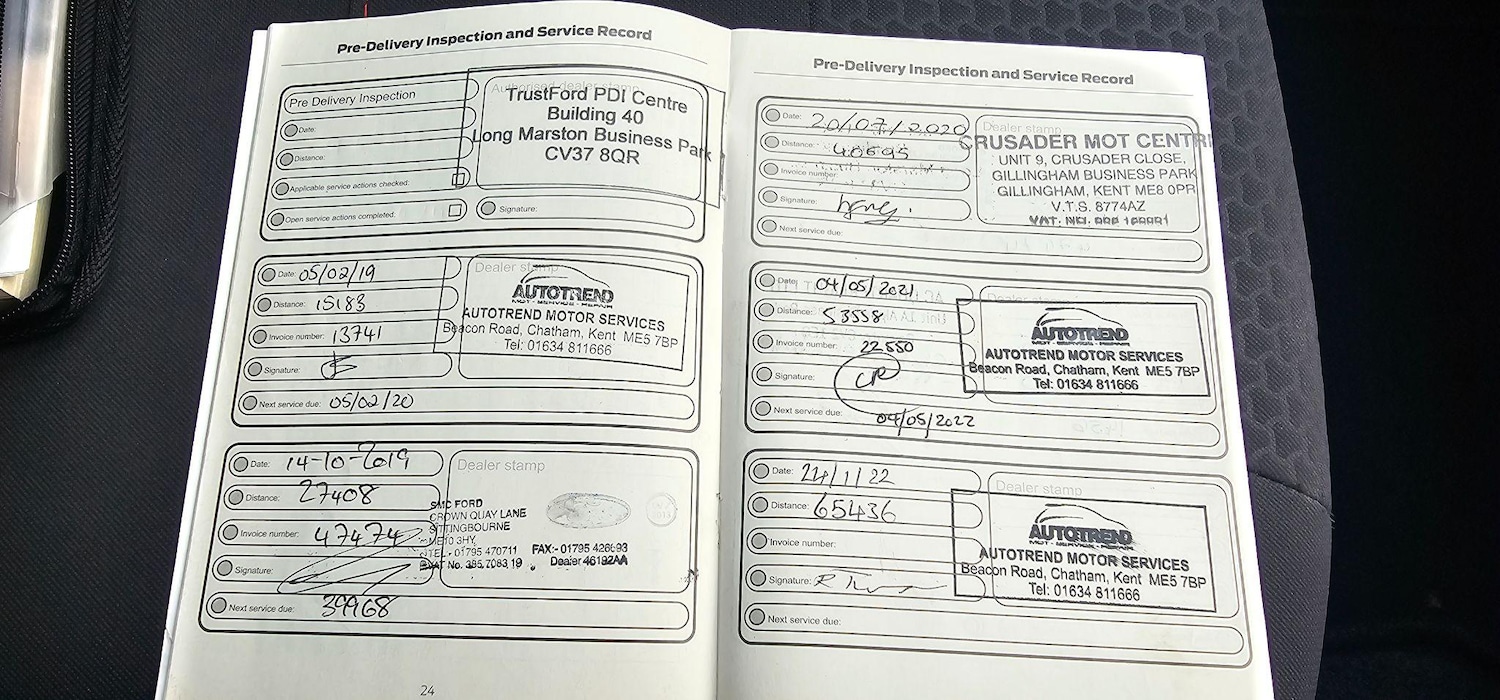 Pre-Delivery Inspection and Service Record
Pre Delivery Inspection
Date:
Distance:
Applicable service actions checked.
Open service actions completed.
Authorised dealer stamp
TrustFord PDI Centre
Building 40
Long Marston Business Park
CV37 8QR
Signature:
Date: 05/02/19
Distance: 15183
Invoice number: 13741
Signature:
Next service due: 05/02/20
Dealer stamp
AUTOTREND
MOT - SERVICE - REPAIR
AUTOTREND MOTOR SERVICES
Beacon Road, Chatham, Kent ME5 7BP
Tel: 01634 811666
Date: 14-10-2019
Distance: 27408
Invoice number: 47474
Signature:
Next service due: 39968
Dealer stamp
SMC FORD
CROWN QUAY LANE
SITTINGBOURNE
ME10 3HY
TEL - 01795 470711
VAT No. 385 7083 19
FAX:- 01795 426693
Dealer 46192AA
24
Pre-Delivery Inspection and Service Record
Date: 20/07/2020
Distance: 40695
Invoice number:
Signature:
Next service due:
Dealer stamp
CRUSADER MOT CENTRE
UNIT 9, CRUSADER CLOSE,
GILLINGHAM BUSINESS PARK
GILLINGHAM, KENT ME8 0PR
V.T.S. 8774AZ
VAT. NO.
Date: 04/05/2021
Distance: 53558
Invoice number: 22550
Signature: CR
Next service due: 04/05/2022
Dealer stamp
AUTOTREND
MOT - SERVICE - REPAIR
AUTOTREND MOTOR SERVICES
Beacon Road, Chatham, Kent ME5 7BP
Tel: 01634 811666
Date: 24/1/22
Distance: 65436
Invoice number:
Signature:
Next service due:
Dealer stamp
AUTOTREND
MOT - SERVICE - REPAIR
AUTOTREND MOTOR SERVICES
Beacon Road, Chatham, Kent ME5 7BP
Tel: 01634 811666